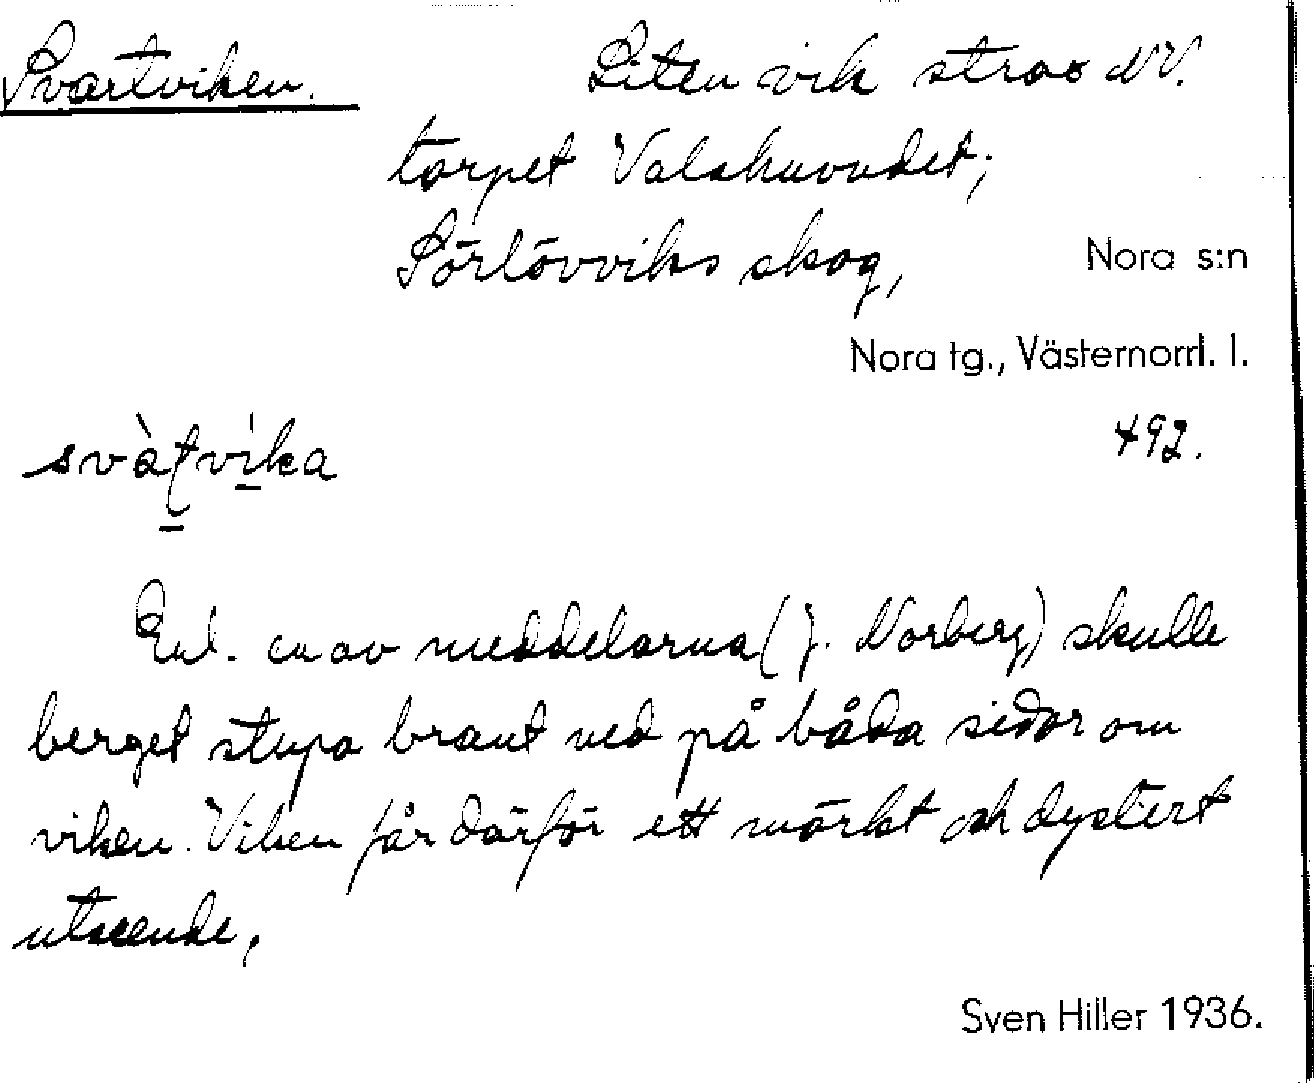 Svartviken. Liten vik strax NV.
torpet Valahuvudet;
Sörlövviks skog, Nora s:n
Nora tg., Västernorrl. l.
492.
svàt̠vi̠ka
Enl. en av meddelarna (J. Norberg) skulle
berget stupa brant ned på båda sidor om
viken. Viken får därför ett mörkt och dystert
utseende.
Sven Hiller 1936.